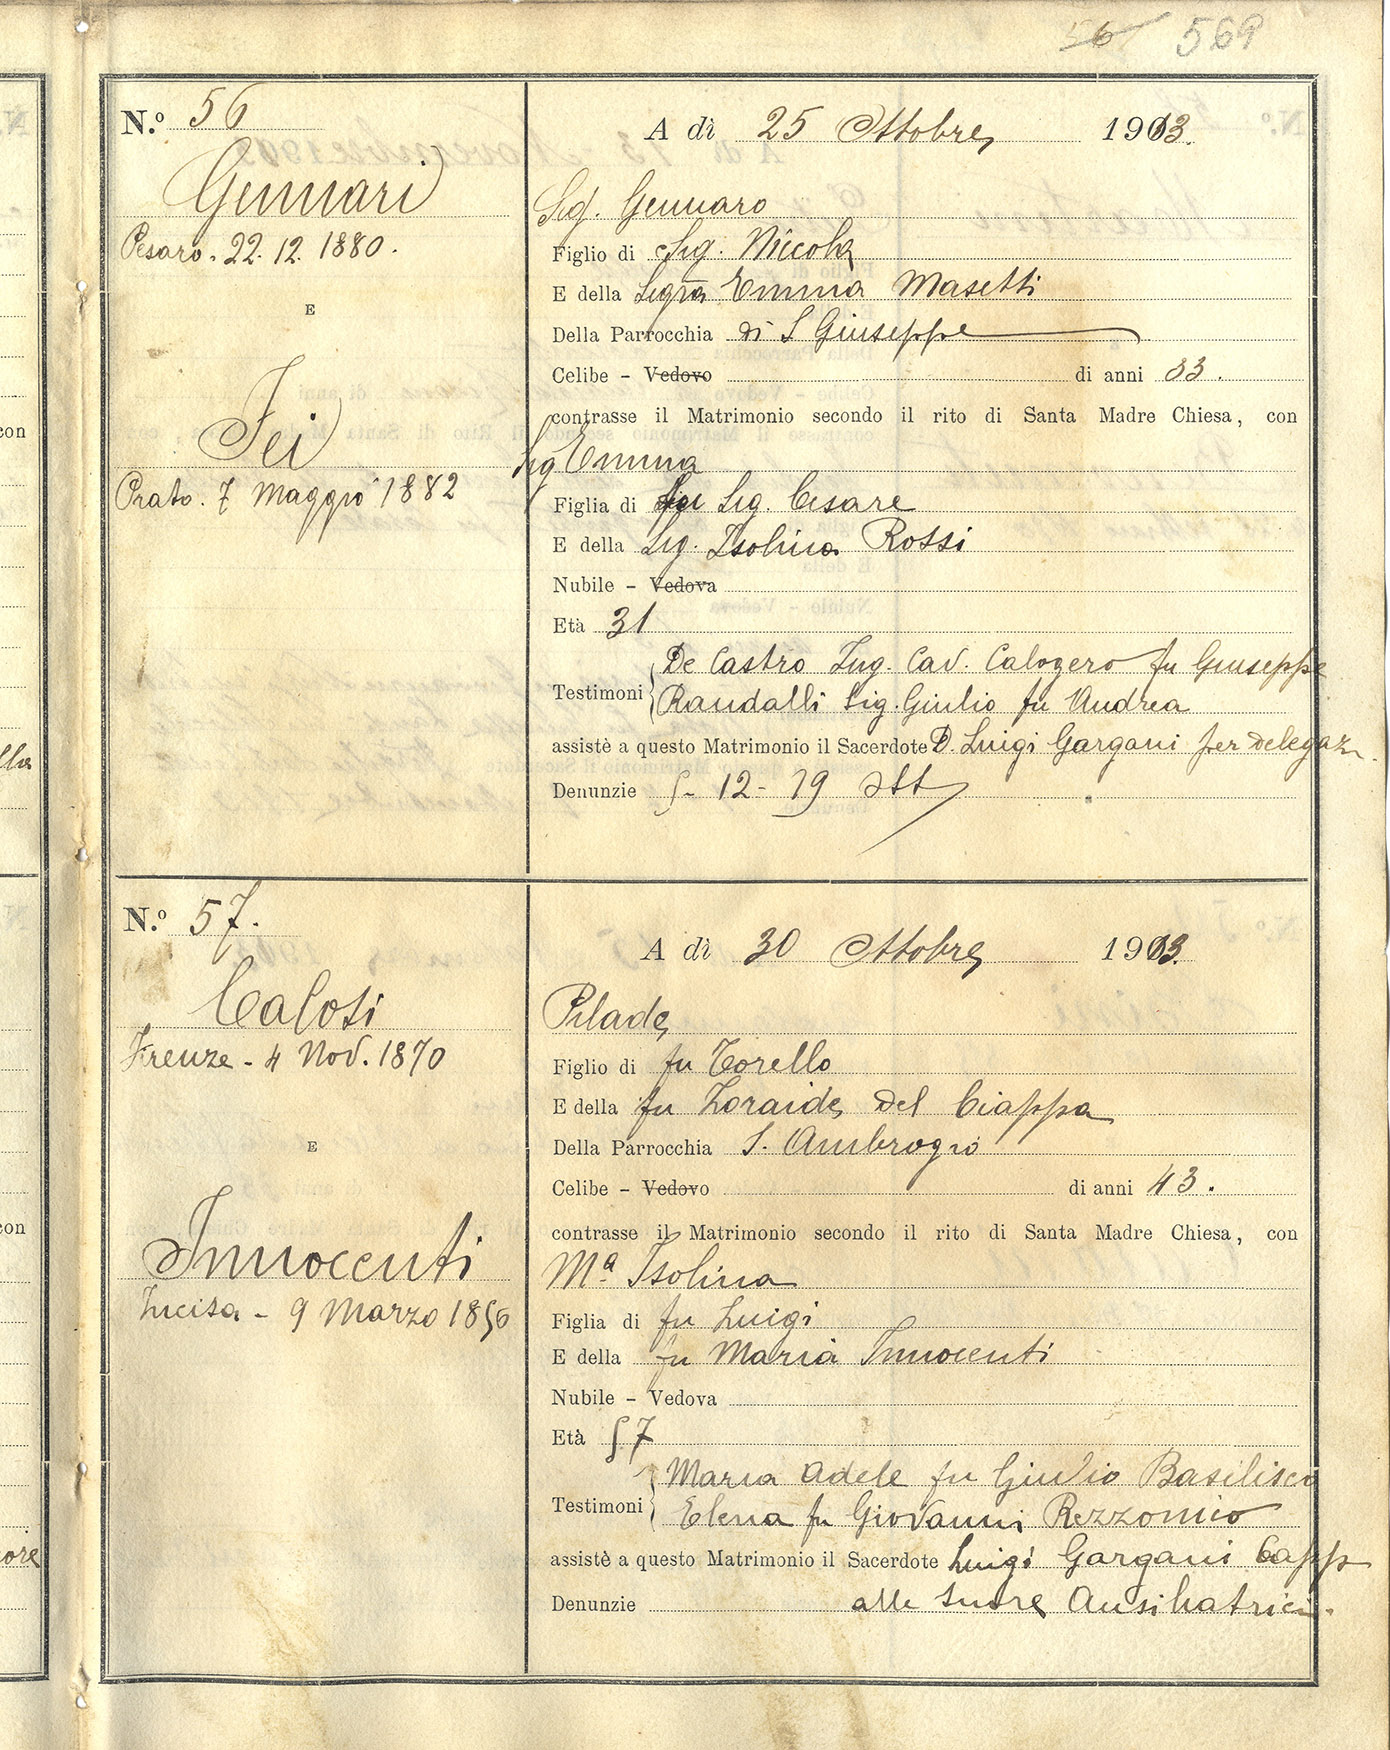 569
N.º 56
Gennari
Pesaro. 22. 12. 1880.
E
Fei
Prato. 7 Maggio 1882
A dì 25 Ottobre 1913.
Sig. Gennaro
Figlio di Sig. Niccola
E della Sigra Emma Masetti
Della Parrocchia di S Giuseppe
Celibe – Vedovo di anni 33.
contrasse il Matrimonio secondo il rito di Santa Madre Chiesa, con
Sig Emma
Figlia di fu Sig. Cesare
E della Sig. Isolina Rossi
Nubile – Vedova
Età 31
De Castro Ing. Cav. Calogero fu Giuseppe
Testimoni
Randalli Sig. Giulio fu Andrea
assistè a questo Matrimonio il Sacerdote D. Luigi Gargani per delegaz.
Denunzie 5- 12- 19 Ott
N.º 57.
Calosi
Firenze - 4 Nov. 1870
E
Innocenti
Incisa - 9 Marzo 1856
A dì 30 Ottobre 1913.
Pilade
Figlio di fu Torello
E della fu Zoraide Del Ciappa
Della Parrocchia S. Ambrogio
Celibe – Vedovo di anni 43.
contrasse il Matrimonio secondo il rito di Santa Madre Chiesa, con
Mª Isolina
Figlia di fu Luigi
E della fu Maria Innocenti
Nubile – Vedova
Età 57
Maria Adele fu Giulio Basilisco
Testimoni
Elena fu Giovanni Rezzonico
assistè a questo Matrimonio il Sacerdote Luigi Gargani Capp
Denunzie alle Suore Ausiliatrici.